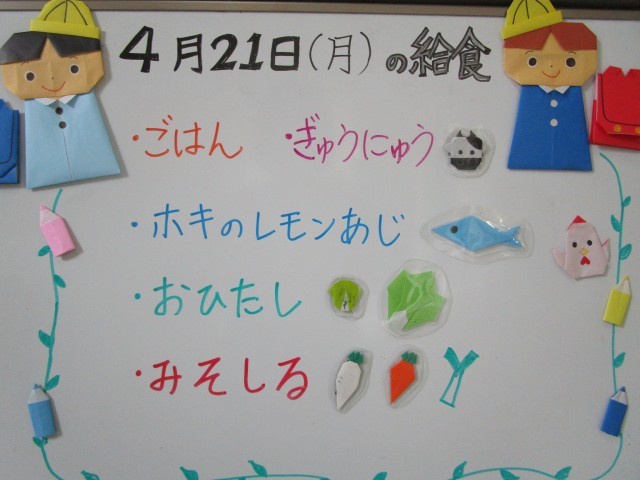 4月21日(月)の給食
・ごはん ・ぎゅうにゅう
・ホキのレモンあじ
・おひたし
・みそしる